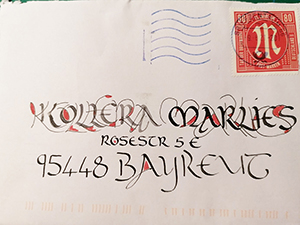 80 80
KOLLERA MARLIES
ROSESTR 5 E
95448 BAYREUT